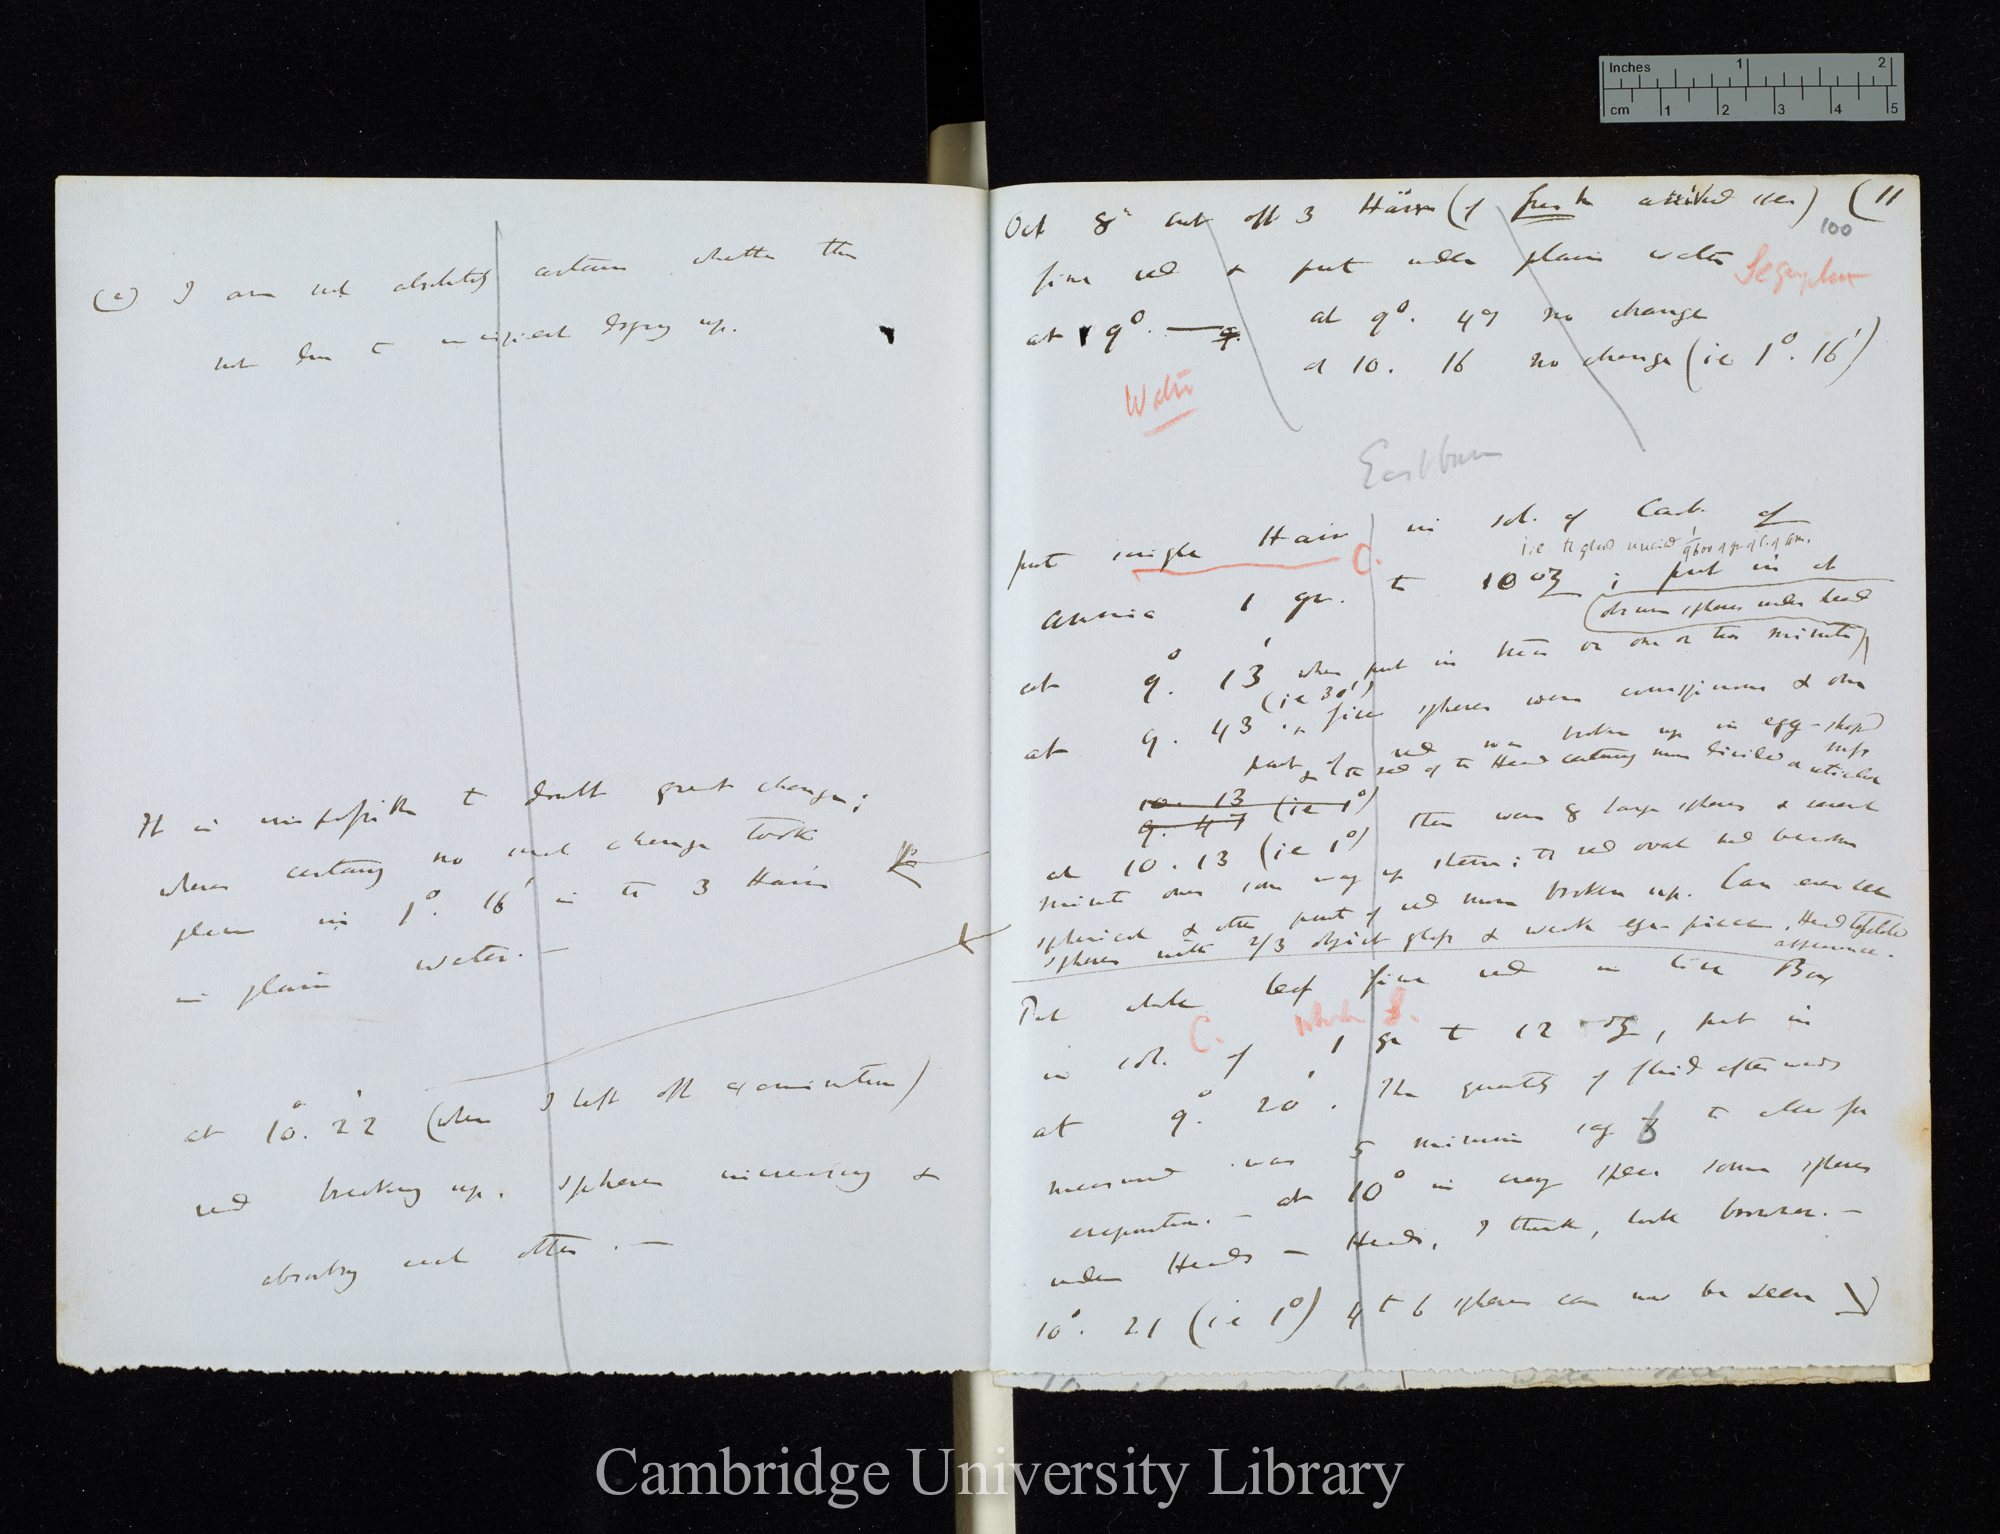 (a) I am not absolutely certain whether this
not due to incipient drying up.
It is impossible to doubt great change;
where certainly no such change took
place in 1°. 16' in the 3 Hairs
in plain water. —
at 10°. 22' (when I left off examination)
red breaking up. Spheres increasing &
absorbing each other. —
Oct 8th cut off 3 Hairs (of fresh arrived
(11
100
fine red & put under plain water
at 9°. — at 9°. 49 no change
at 10. 16 no change (ie 1°. 16')
Water
Eastbourne
put single Hair in sol. of Carb. of
C.
i.e. the gland received
ammonia 1 gr. to 10 oz ; put in at
spheres under head
at 9°. 13' when put in there or one or two minute)
(ie 30')
at 9. 43 fine spheres were conspicuous & one
part of red was broken up in egg-shaped
& the red of the Head certainly more divided
10. 13 (ie 1°)
9. 47
at 10. 13 (ie 1°) there were 8 large spheres & several
minute ones some way up stem; the red oval had become
spherical & other part of red more broken up. Can even see
spheres with 2/3 object glass & weak eye-piece. Head
appearance.
Put whole leaf fine red in live Box
C. whole L.
in sol. of 1 gr to 12 oz, put in
at 9°. 20'. The quantity of fluid afterwards
measured was 5 minims say 6 to allow for
evaporation. — at 10° in every case some spheres
under Heads — Heads, I think, look browner. —
10°. 21 (ie 1°) 4 to 6 spheres can now be seen
Inches 1 2
cm 1 2 3 4 5
Cambridge University Library